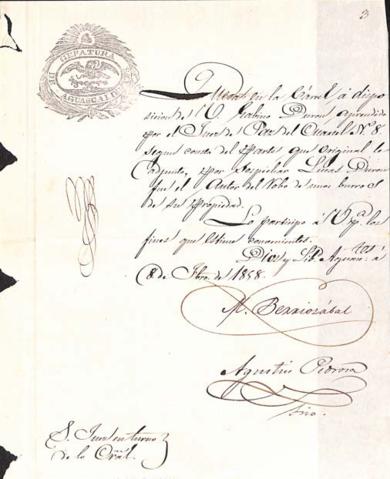 3
GEFATURA
DE AGUASCALIENTES
Queda en la Cárcel á dispo
sicion de V. Gabino Duron aprendido
por el Juez de Paz del Cuartel N. 8.
segun consta del parte que original le
adjunto, por sospechar Linos Duron
fué el Autor del Robo de unos burros
de su propiedad.
Lo participo á V. pa. los
fines que estime convenientes.
Dios y Lib. Aguas.
8 de 1858.
M. Berriozábal
Agustin Pedroza
Srio.
S. Juez en turno
de lo Crál.